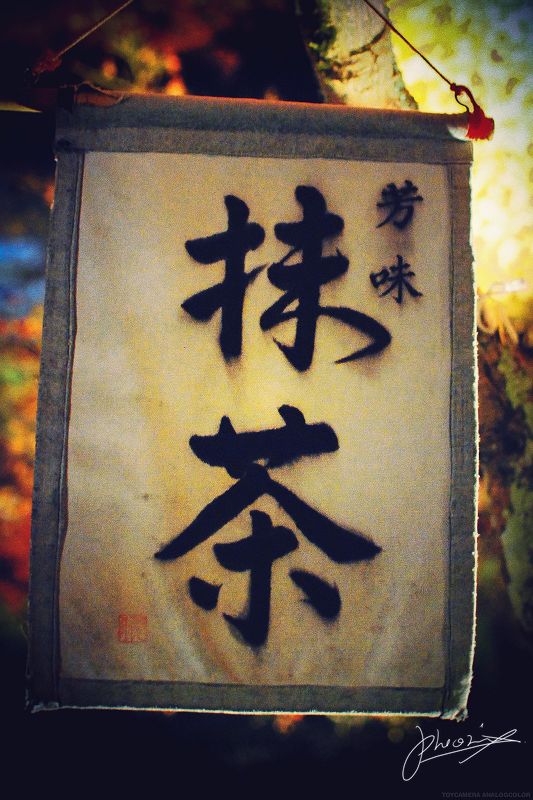 芳味
抹茶
TOYCAMERA ANALOGCOLOR